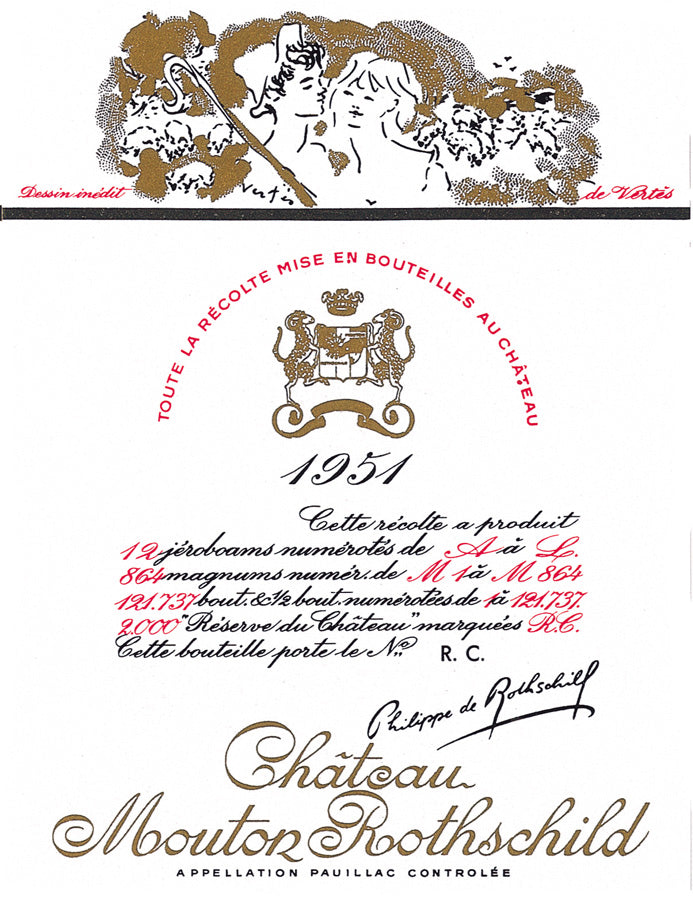 Vertès
Dessin inédit
de Vertès
TOUTE LA RÉCOLTE MISE EN BOUTEILLES AU CHÂTEAU
1951
Cette récolte a produit
12 jéroboams numérotés de A à L.
864 magnums numér. de M 1 à M 864
121.737 bout. & ½ bout. numérotées de 1 à 121.737.
2.000 "Réserve du Château" marquées R.C.
Cette bouteille porte le No. R. C.
Philippe de Rothschild
Château
Mouton Rothschild
APPELLATION PAUILLAC CONTROLÉE